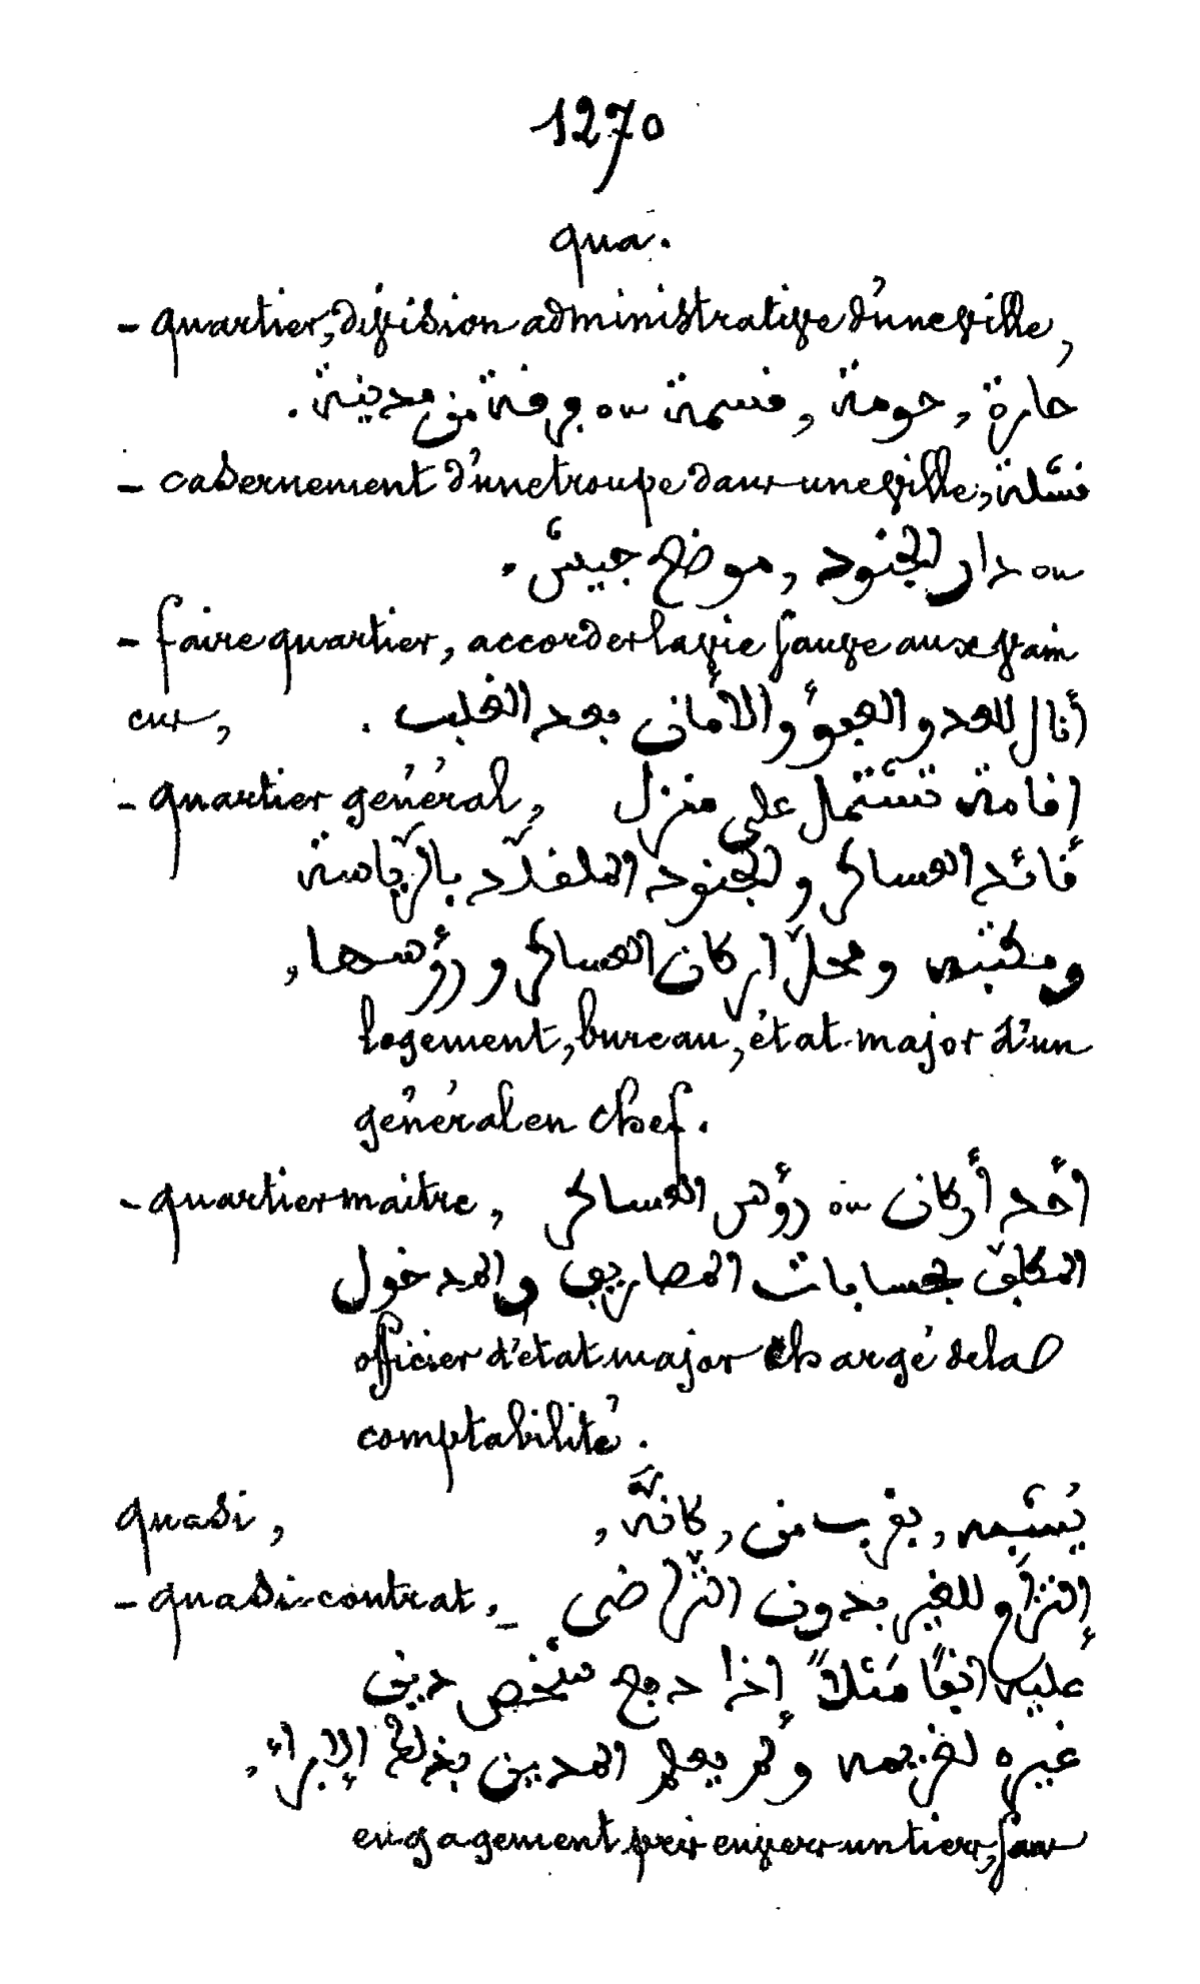 1270
qua.
- quartier, division administrative d'une ville,
حارة, حومة, فسمة ou فرفة من مدينة.
- casernement d'une troupe dans une ville, فشلة
ou دار الجنود, موضع جيش.
- faire quartier, accorder la vie sauve aux vain
cus, أنال للعدو العفو والأمان بعد الغلب.
- quartier général, إفامة تشتمل على منزل
فائد العساكر والجنود الملفد بالرّياسة
ومكتبه ومحلّ اركان العساكر ورؤسها,
logement, bureau, état-major d'un
général en chef.
- quartier maitre, أحد أركان ou رؤس العساكر
المكلف بحسابات المصاريف والمدخول
officier d'état-major chargé de la
comptabilité.
quasi, يُشبه, بفرب من, كأنّه,
- quasi-contrat, - إلتزام للغير بدون التّراضى
عليه انفًا مَثلاً إذا دفع شخص دين
غيره لغريمه ولم يعلم المدين بذلك الإبراء.
engagement pris envers un tiers, sans